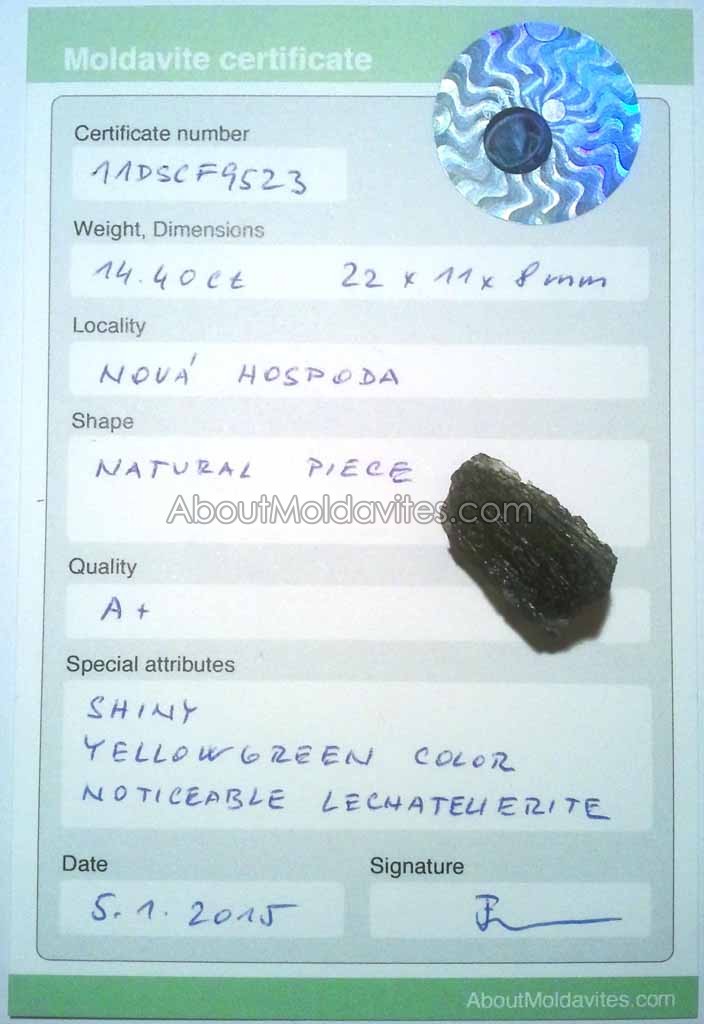 Moldavite certificate
Certificate number
11DSCF9523
Weight, Dimensions
14.40ct 22 x 11 x 8 mm
Locality
NOVÁ HOSPODA
Shape
NATURAL PIECE
AboutMoldavites.com
Quality
A+
Special attributes
SHINY
YELLOWGREEN COLOR
NOTICEABLE LECHATELIERITE
Date
Signature
5.1.2015
AboutMoldavites.com